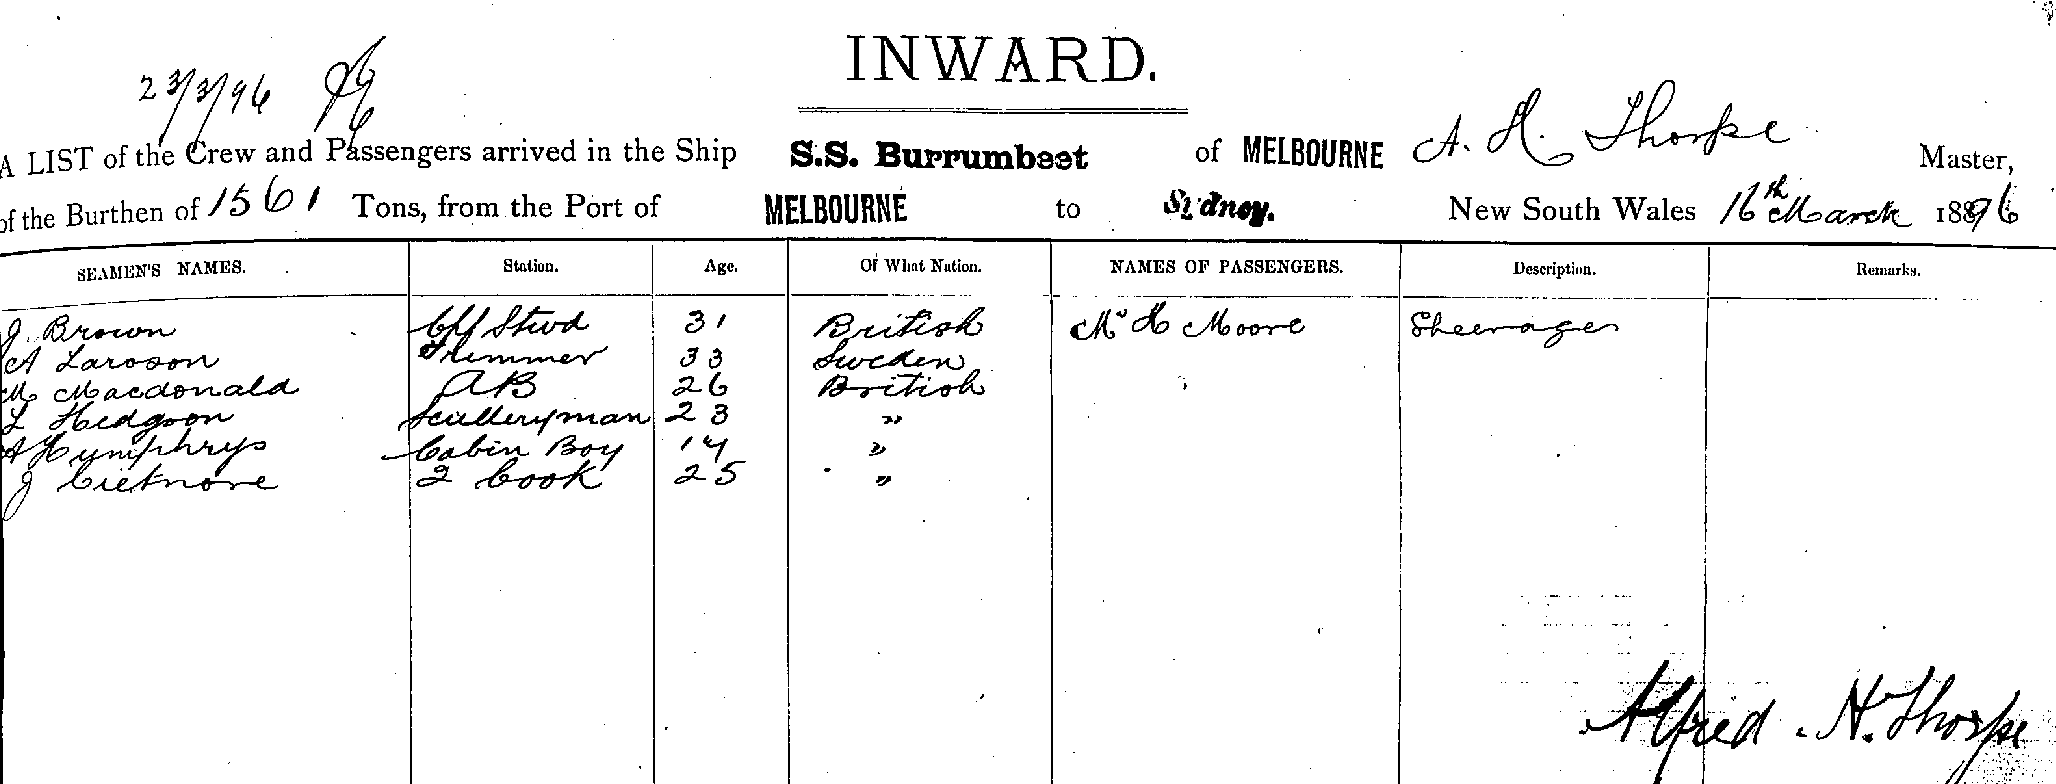 INWARD.
23/3/96
A LIST of the Crew and Passengers arrived in the Ship S.S. Burrumbeet of MELBOURNE A. H. Thorpe Master,
of the Burthen of 1561 Tons, from the Port of MELBOURNE to Sydney. New South Wales 16th March 1896
SEAMEN'S NAMES. Station. Age. Of What Nation. NAMES OF PASSENGERS. Description. Remarks.
J. Brown Off Stwd 31 British Mr H Moore Steerage
A Larsson Trimmer 33 Sweden
M Macdonald AB 26 British
L Hedgson Sculleryman 23 "
A Humphrys Cabin Boy 17 "
J 2 Cook 25 "
Alfred . H. Thorpe